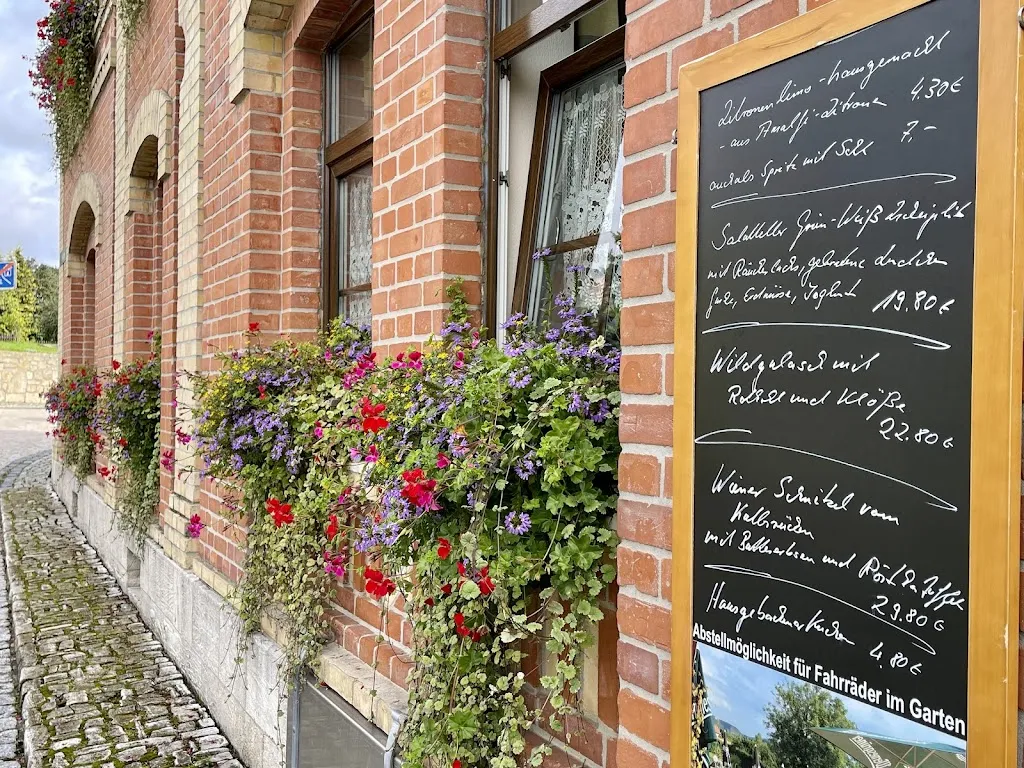 Zitronenlimo - hausgemacht
- aus Amalfi-Zitrone 4.30€
auch als Spritz mit Sekt 7,-
Salatteller Grün-Weiß
mit Räucherlachs, gebratene
Gurke, Erdnüsse, Joghurt 19.80€
Wildgulasch mit
Rotkohl und Klöße
22.80€
Wiener Schnitzel vom
Kalbsrücken
mit Buttererbsen und Röstkartoffel
29.80€
Hausgebackener Kuchen
4.80€
Abstellmöglichkeit für Fahrräder im Garten